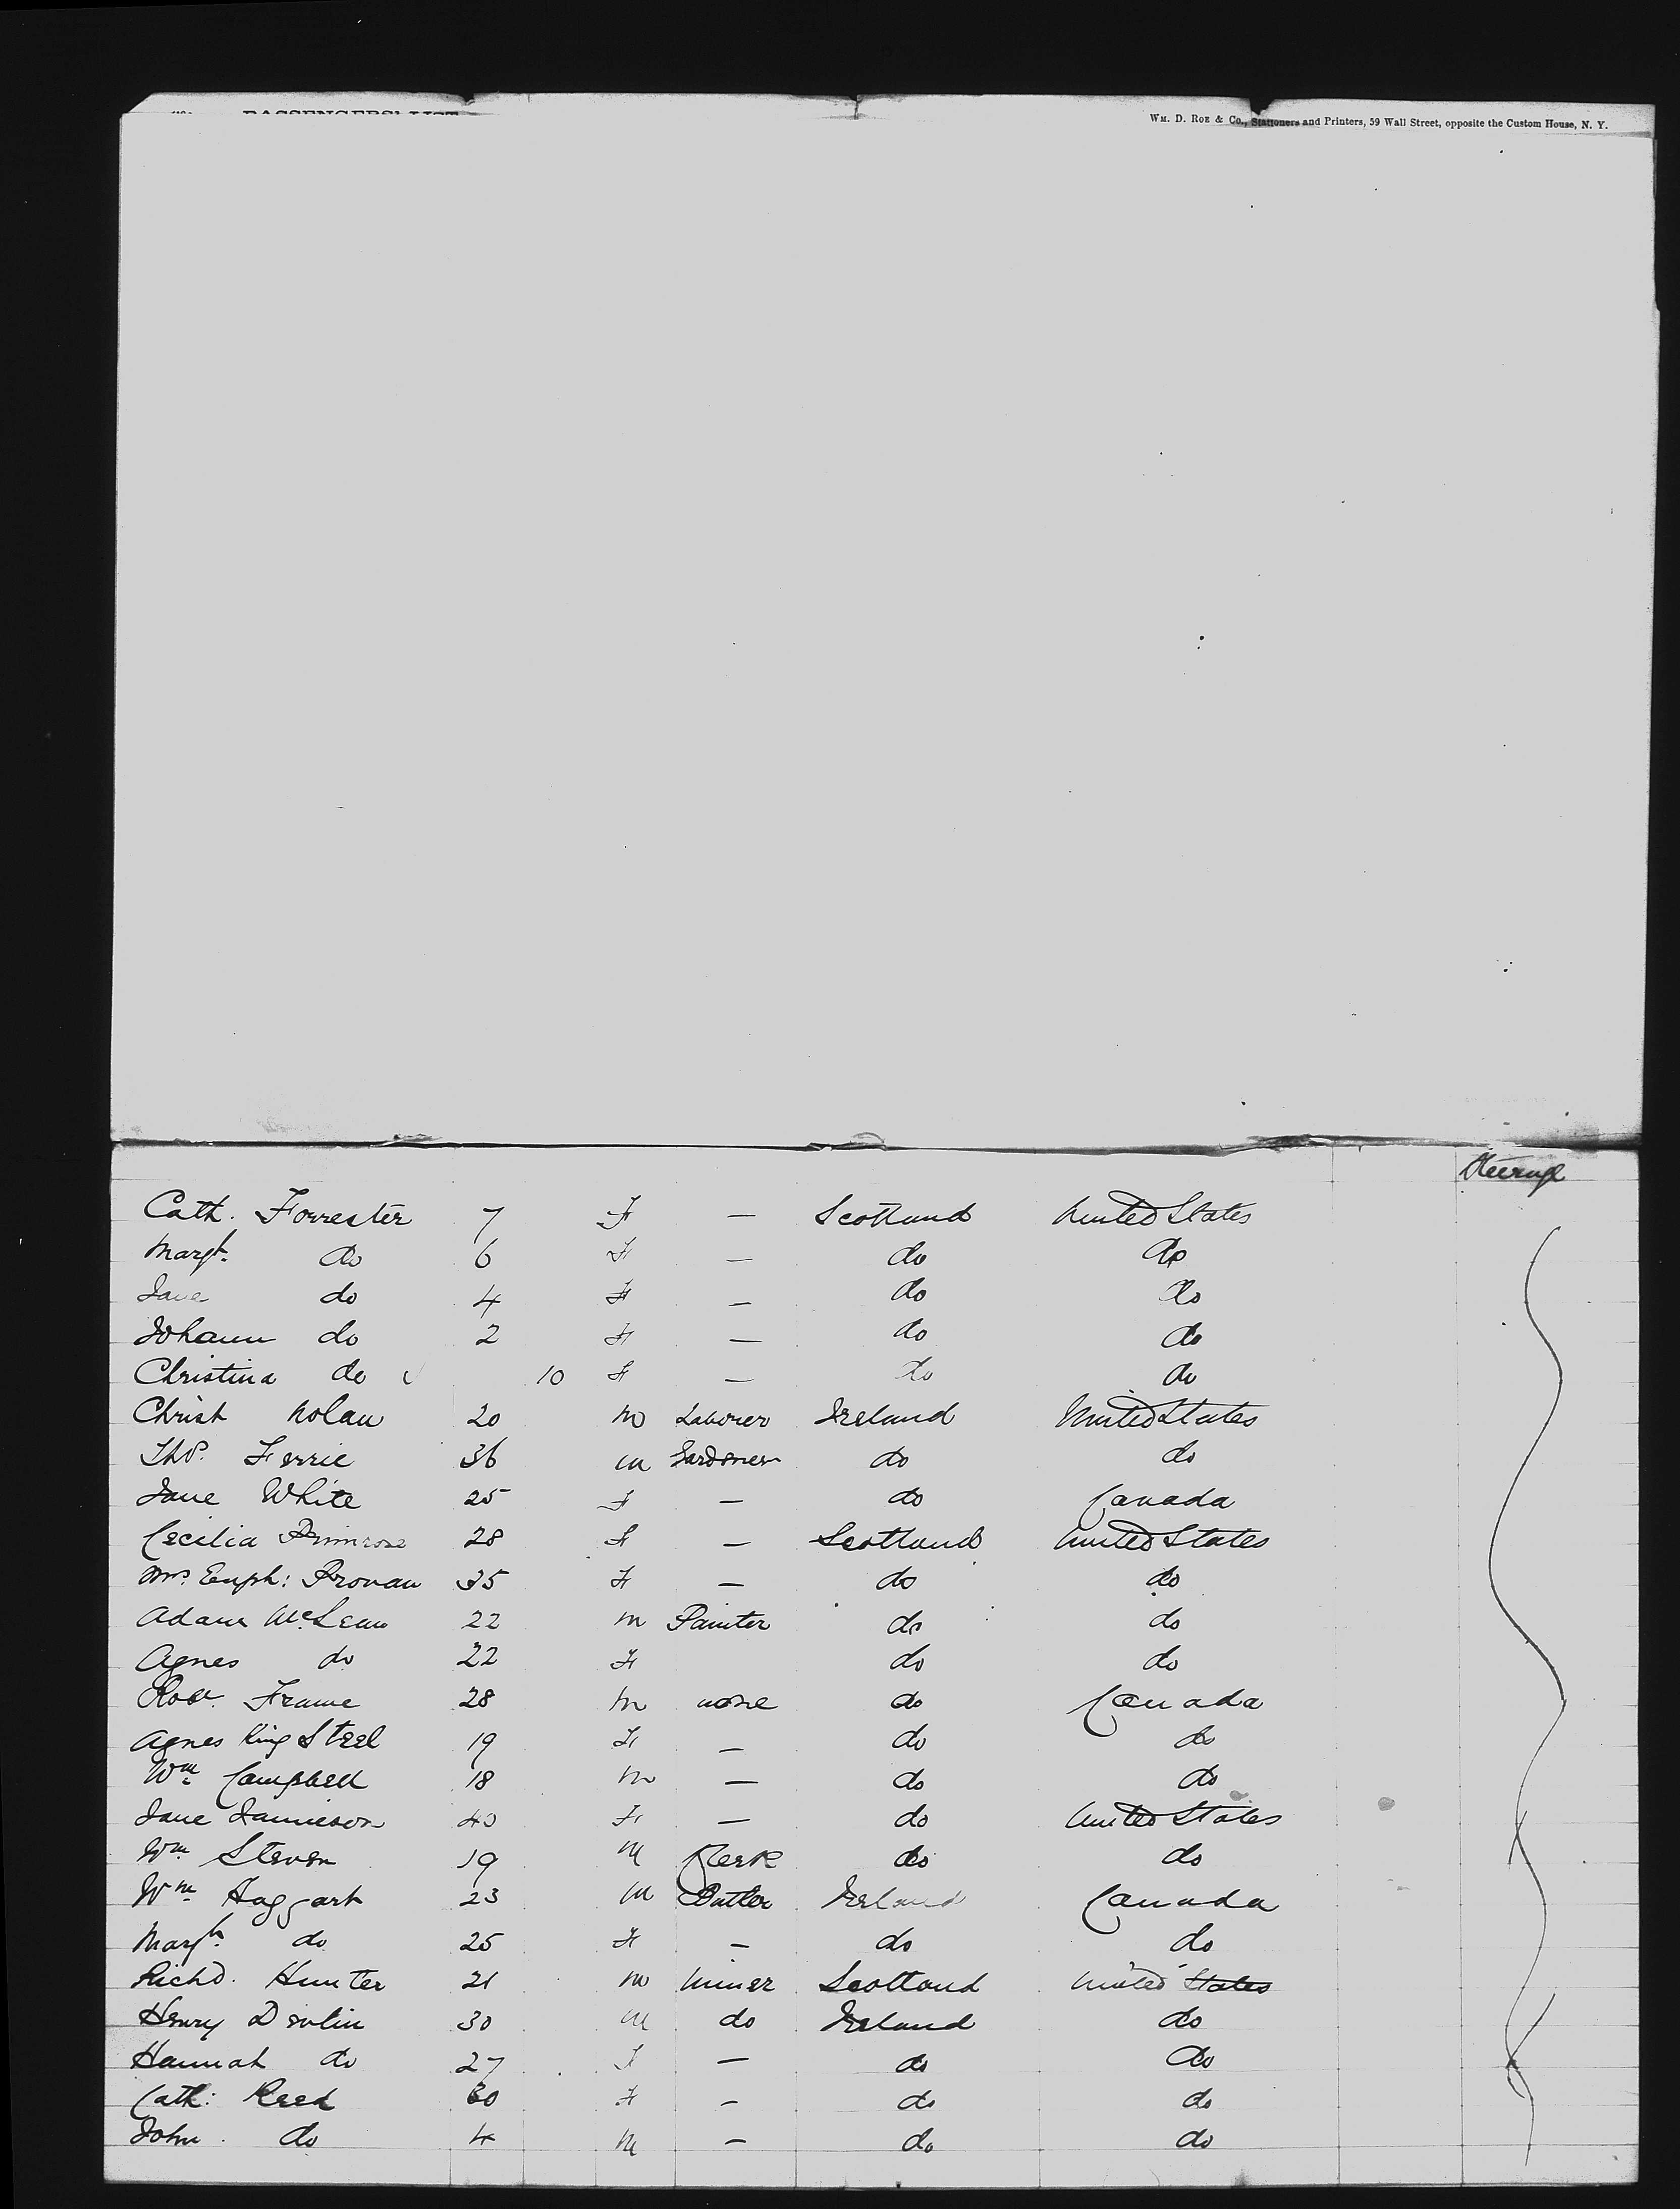 PASSENGERS' LIST
Wm. D. Roe & Co., Stationers and Printers, 59 Wall Street, opposite the Custom House, N. Y.
Steerage
Cath. Forrester 7 F — Scotland United States
Margt. do 6 F — do do
Jane do 4 F — do do
Johann do 2 F — do do
Christina do 10 F — do do
Christ Nolan 20 M Laborer Ireland United States
Thos. Ferrie 36 M Gardener do do
Jane White 25 F — do Canada
Cecilia Primrose 28 F — Scotland United States
Mrs. Euph: Provan 35 F — do do
Adam McLean 22 M Painter do do
Agnes do 22 F do do
Robt. Frame 28 M none do Canada
Agnes King Steel 19 F — do do
Wm Campbell 18 M — do do
Jane Jamieson 40 F — do United States
Wm Steven 19 M Clerk do do
Wm Haggart 23 M Butler Ireland Canada
Margt. do 25 F — do do
Richd. Hunter 21 M Miner Scotland United States
Henry Devlin 30 M do Ireland do
Hannah do 27 F — do do
Cath: Reed 60 F — do do
John do 4 M — do do